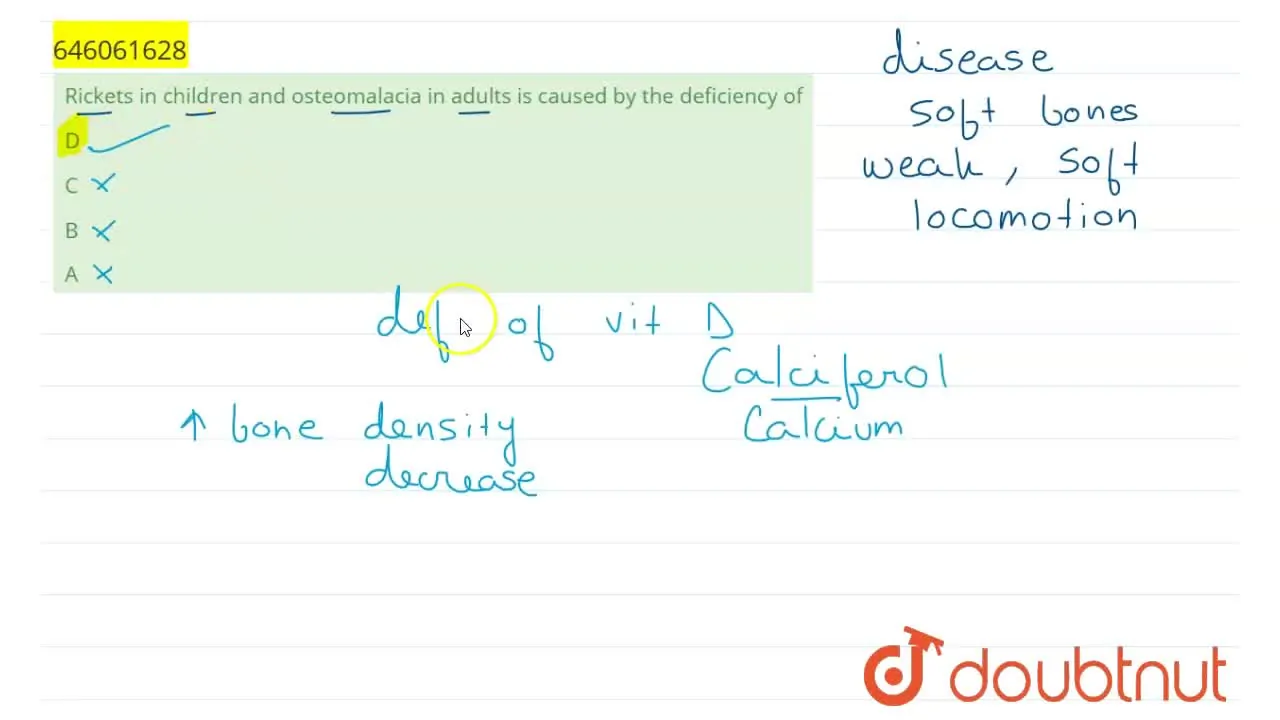 646061628
disease
Rickets in children and osteomalacia in adults is caused by the deficiency of
soft bones
D
weak, soft
C
locomotion
B
A
def of vit D
Calciferol
↑ bone density
Calcium
decrease
doubtnut